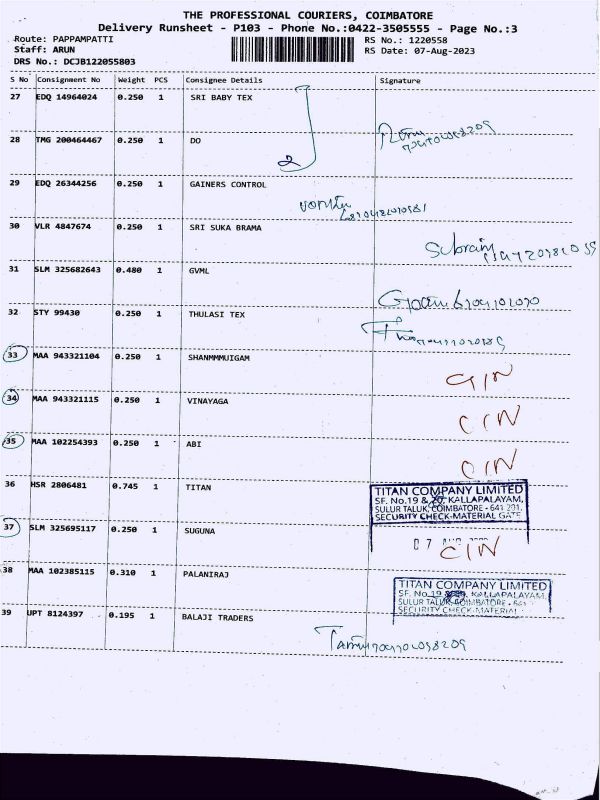 THE PROFESSIONAL COURIERS, COIMBATORE
Delivery Runsheet - P103 - Phone No.:0422-3505555 - Page No.:3
Route: PAPPAMPATTI RS No.: 1220558
Staff: ARUN RS Date: 07-Aug-2023
DRS No.: DCJB122055803
S No Consignment No Weight PCS Consignee Details Signature
27 EDQ 14964024 0.250 1 SRI BABY TEX
28 TMG 200464467 0.250 1 DO
2
29 EDQ 26344256 0.250 1 GAINERS CONTROL
30 VLR 4847674 0.250 1 SRI SUKA BRAMA
31 SLM 325682643 0.480 1 GVML
32 STY 99430 0.250 1 THULASI TEX
33 MAA 943321104 0.250 1 SHANMMMUIGAM
34 MAA 943321115 0.250 1 VINAYAGA
CIN
35 MAA 102254393 0.250 1 ABI
CIN
36 HSR 2806481 0.745 1 TITAN
TITAN COMPANY LIMITED
SF. No.19 & 20, KALLAPALAYAM,
SULUR TALUK, COIMBATORE - 641 201.
SECURITY CHECK-MATERIAL GATE
37 SLM 325695117 0.250 1 SUGUNA
CIN
38 MAA 102385115 0.310 1 PALANIRAJ
TITAN COMPANY LIMITED
SF. No.19 & 20, KALLAPALAYAM,
SULUR TALUK, COIMBATORE - 641
SECURITY CHECK-MATERIAL
39 UPT 8124397 0.195 1 BALAJI TRADERS